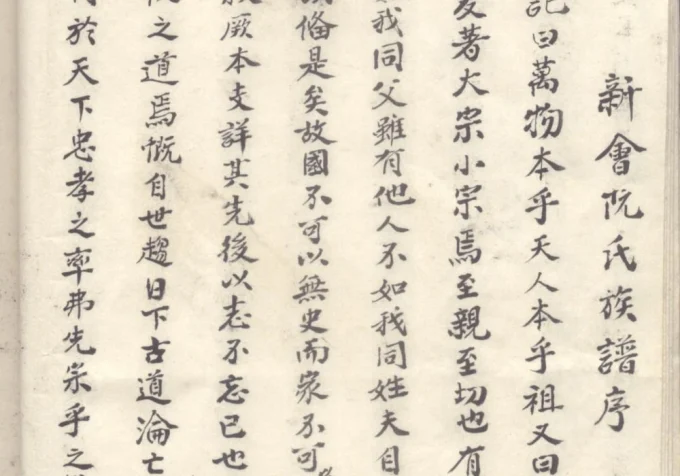 新會阮氏族譜序
記曰萬物本乎天人本乎祖又曰
爰著大宗小宗焉至親至切也有
我同父雖有他人不如我同姓夫自
備是矣故國不可以無史而家不可
厥本支詳其先後以志不忘已也
之道焉慨自世趨日下古道淪亡
於天下忠孝之率弗先宗乎之